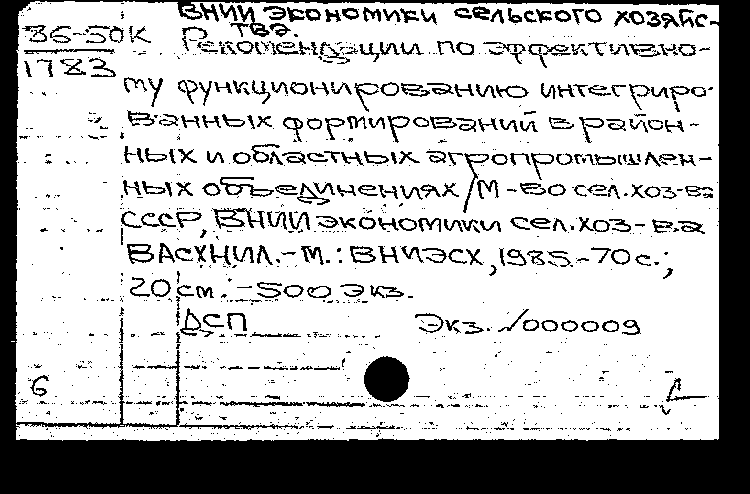 ВНИИ экономики сельского хозяйс-
тва.
86-50К
Рекомендации по эффективно-
1783
му функционированию интегриро-
ванных формирований в район-
ных и областных агропромышлен-
ных объединениях / М-во сел.хоз-ва
СССР, ВНИИ экономики сел.хоз-ва
ВАСХНИЛ.-М.: ВНИЭСХ, 1985.-70 с.;
20 см.-500 экз.
ДСП Экз. №000009
6 Д